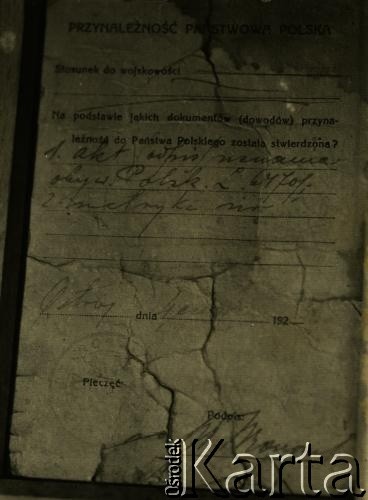 PRZYNALEŻNOŚĆ PAŃSTWOWA POLSKA
Stosunek do wojskowości
Na podstawie jakich dokumentów (dowodów) przyna-
leżność do Państwa Polskiego została stwierdzona?
1. akt odpis uznania
obyw. Polsk. L. 6470/
2.
Ostróg dnia 192
Pieczęć:
Podpis:
Ośrodek
Karta